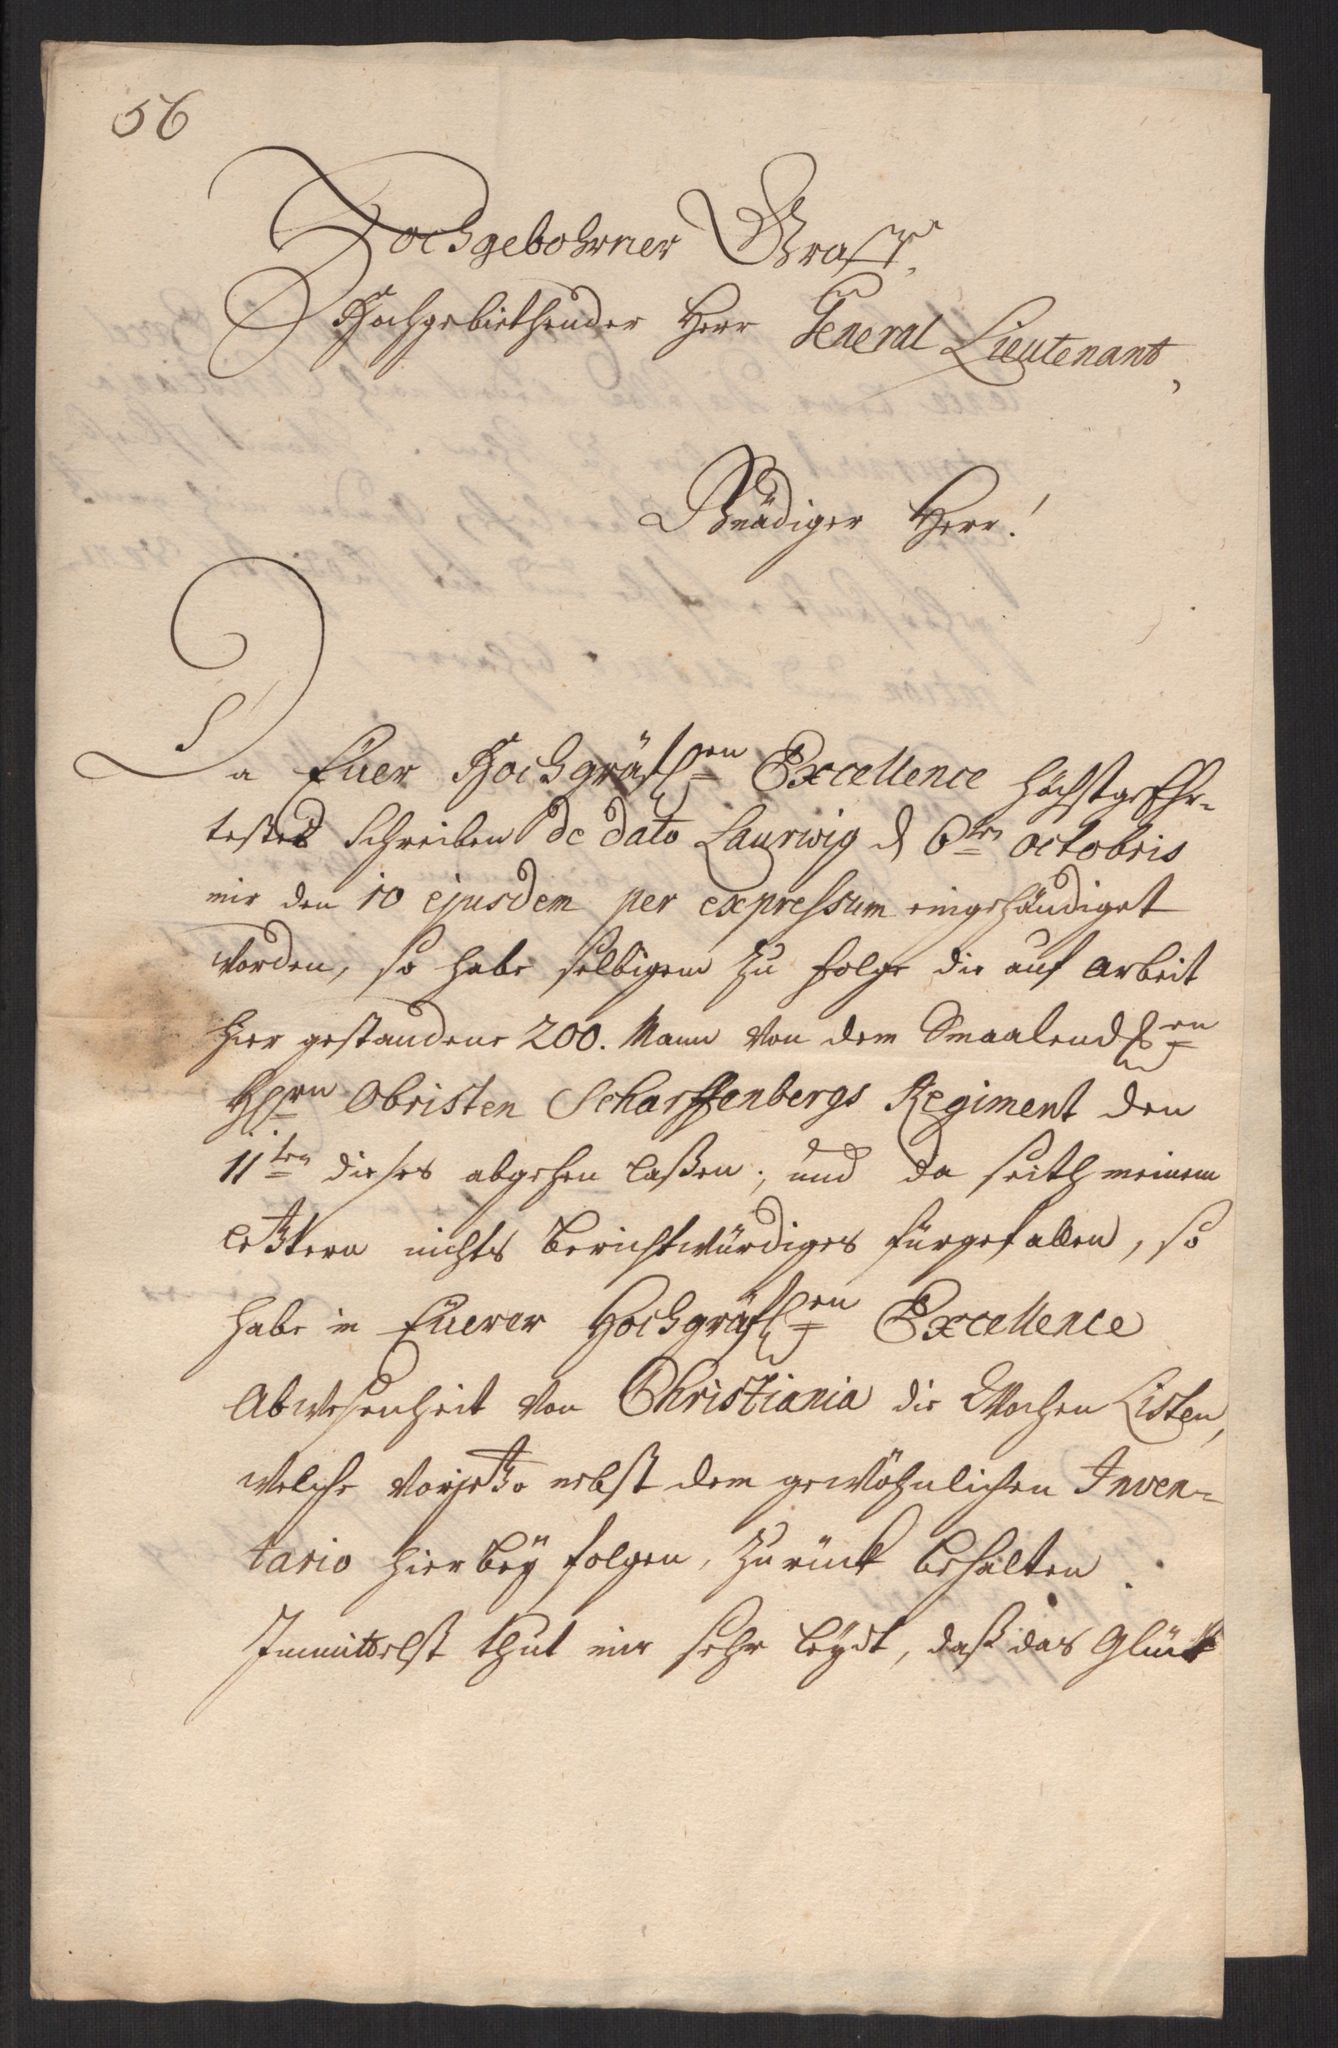 56
Hochgebohrner Graff,
Hochgebiethender Herr General Lieutenant,
Gnädiger Herr!
Da Euer Hochgräfl:en Excellence höchstgeEhr-
testes Schreiben de dato Laurwig d 6ten octobris
mir den 10 ejusdem per expressum eingehändiget
worden, so habe selbigem zu folge die auf arbeit
hier gestandene 200. Mann von dem Smaalendschen
H:rn Obristen Scharffenbergs Regiment den
11ten dieses abgehen laßen; und da seith meinem
letztern nichts berichtwürdiges fürgefallen, so
habe in Euerer Hochgräfl:en Excellence
Abwesenheit von Christiania die Wochen Listen,
welche vorjetzo nebst dem gewöhnlichen Inven-
tario hierbey folgen, zurück behalten.
Immittelst thut mir sehr leydt, daß das Glück